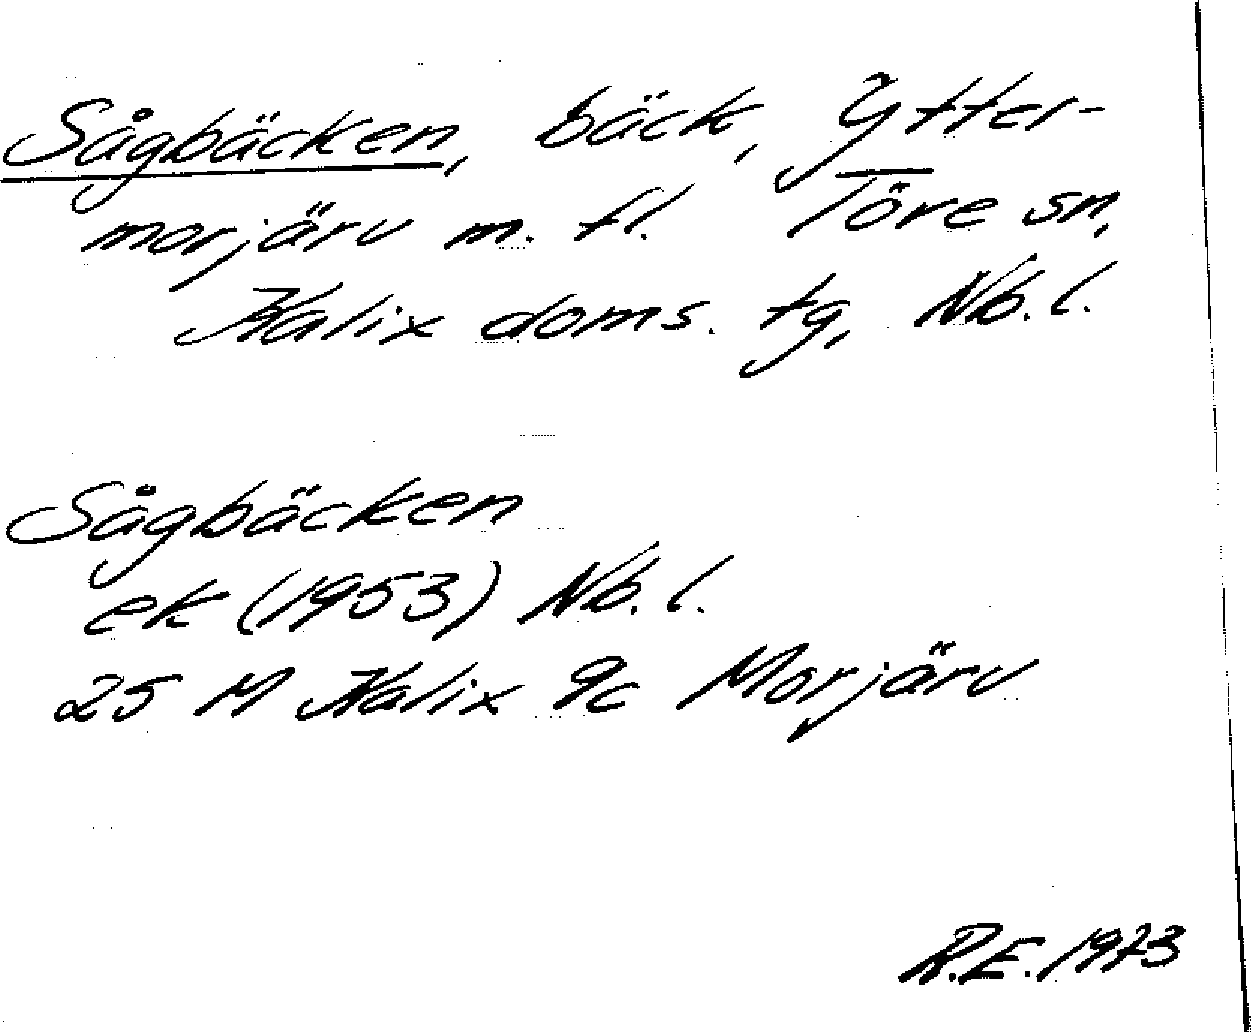 Sågbäcken, bäck, Ytter-
morjärv m. fl. Töre sn,
Kalix doms. tg, Nb. l.
Sågbäcken
ek (1953) Nb. l.
25 M Kalix 9c Morjärv
R.E. 1973